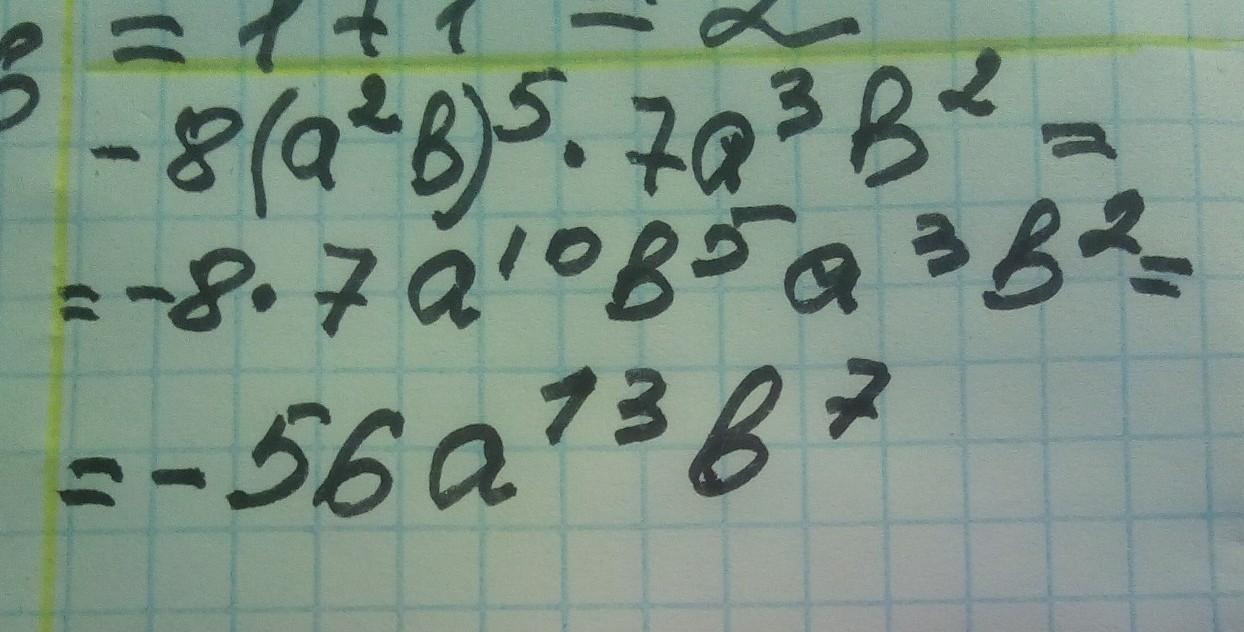 8 = 1 + 1 = 2
-8(a²b)⁵ · 7a³b² =
= -8 · 7a¹⁰b⁵a³b² =
= -56a¹³b⁷